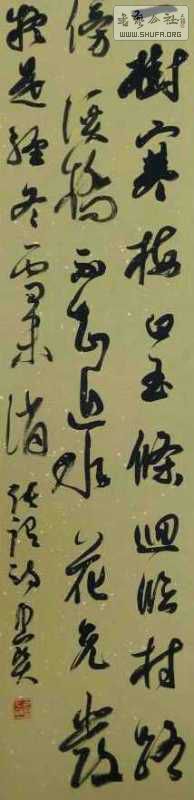 樹寒梅白玉條迴臨村路
傍溪橋不知近水花先發
疑是經冬雪未消 張謂詩
WWW.SHUFA.ORG